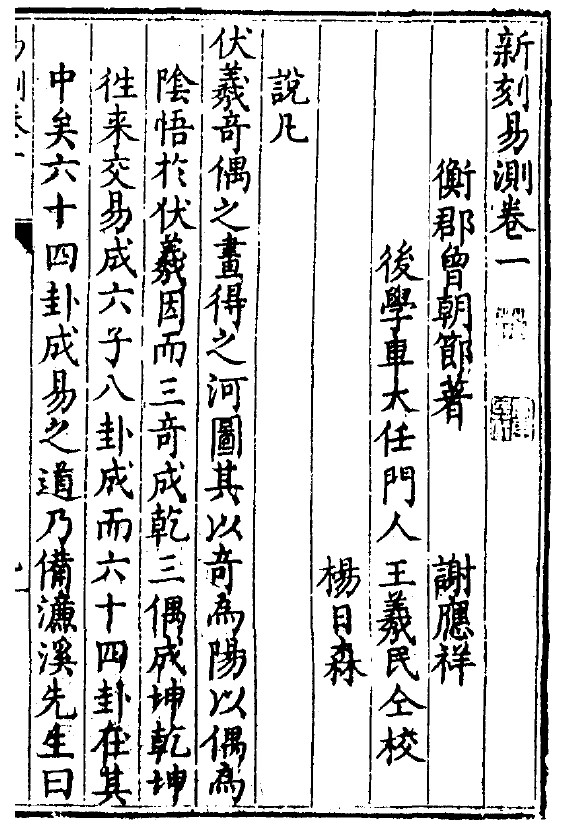 新刻易測卷一
衡郡曾朝節著　謝應祥
後學車大任門人王羲民仝校
楊日森
說凡
伏羲奇偶之畫得之河圖其以奇為陽以偶為
陰悟於伏羲因而三奇成乾三偶成坤乾坤
徃来交易成六子八卦成而六十四卦在其
中矣六十四卦成易之道乃備濂溪先生曰